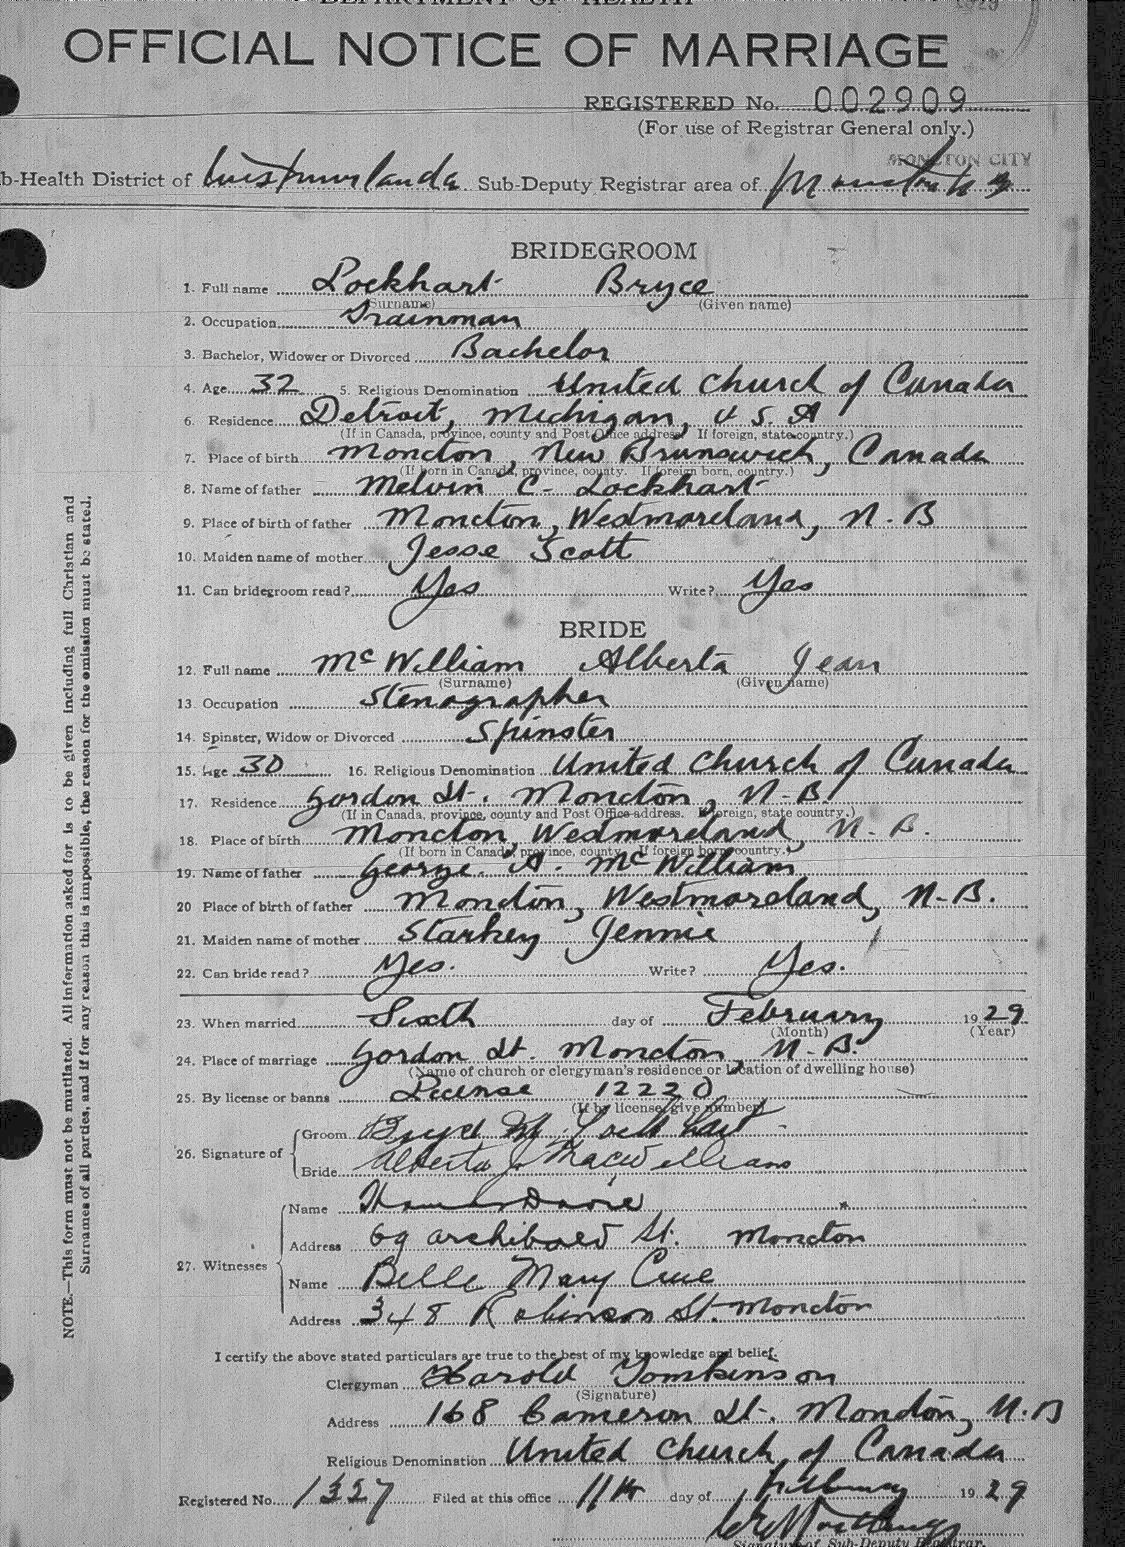 DEPARTMENT OF HEALTH
1929
OFFICIAL NOTICE OF MARRIAGE
REGISTERED No. 002909
(For use of Registrar General only.)
MONCTON CITY
b-Health District of Westmorland Sub-Deputy Registrar area of Moncton
BRIDEGROOM
1. Full name Lockhart Bryce
(Surname) (Given name)
2. Occupation Trainman
3. Bachelor, Widower or Divorced Bachelor
4. Age 32 5. Religious Denomination United Church of Canada
6. Residence Detroit, Michigan, U.S.A
(If in Canada, province, county and Post Office address. If foreign, state country.)
7. Place of birth Moncton, New Brunswick, Canada
(If born in Canada, province, county. If foreign born, country.)
8. Name of father Melvin C. Lockhart
9. Place of birth of father Moncton, Westmoreland, N.B
10. Maiden name of mother Jesse Scott
11. Can bridegroom read? Yes Write? Yes
BRIDE
12. Full name McWilliam Alberta Jean
(Surname) (Given name)
13. Occupation Stenographer
14. Spinster, Widow or Divorced Spinster
15. Age 30 16. Religious Denomination United Church of Canada
17. Residence Gordon St. Moncton, N.B.
(If in Canada, province, county and Post Office address. If foreign, state country.)
18. Place of birth Moncton, Westmoreland, N.B.
(If born in Canada, province, county. If foreign born, country.)
19. Name of father George A. McWilliam
20 Place of birth of father Moncton, Westmoreland, N.B.
21. Maiden name of mother Starkey Jennie
22. Can bride read? Yes. Write? Yes.
23. When married Sixth day of February 1929
(Month) (Year)
24. Place of marriage Gordon St. Moncton, N.B.
(Name of church or clergyman's residence or location of dwelling house)
25. By license or banns License 12220
(If by license, give number)
26. Signature of
Groom Bryce Lockhart
Bride Alberta J. MacWilliam
27. Witnesses
Name
Address 69 Archibald St. Moncton
Name Belle Mary Crue
Address 348 Robinson St. Moncton
I certify the above stated particulars are true to the best of my knowledge and belief.
Clergyman Harold Tomkinson
(Signature)
Address 168 Cameron St. Moncton, N.B
Religious Denomination United Church of Canada
Registered No. 1327 Filed at this office 11th day of February 1929
Signature of Sub-Deputy Registrar.
NOTE.—This form must not be mutilated. All information asked for is to be given including full Christian and
Surnames of all parties, and if for any reason this is impossible, the reason for the emission must be stated.